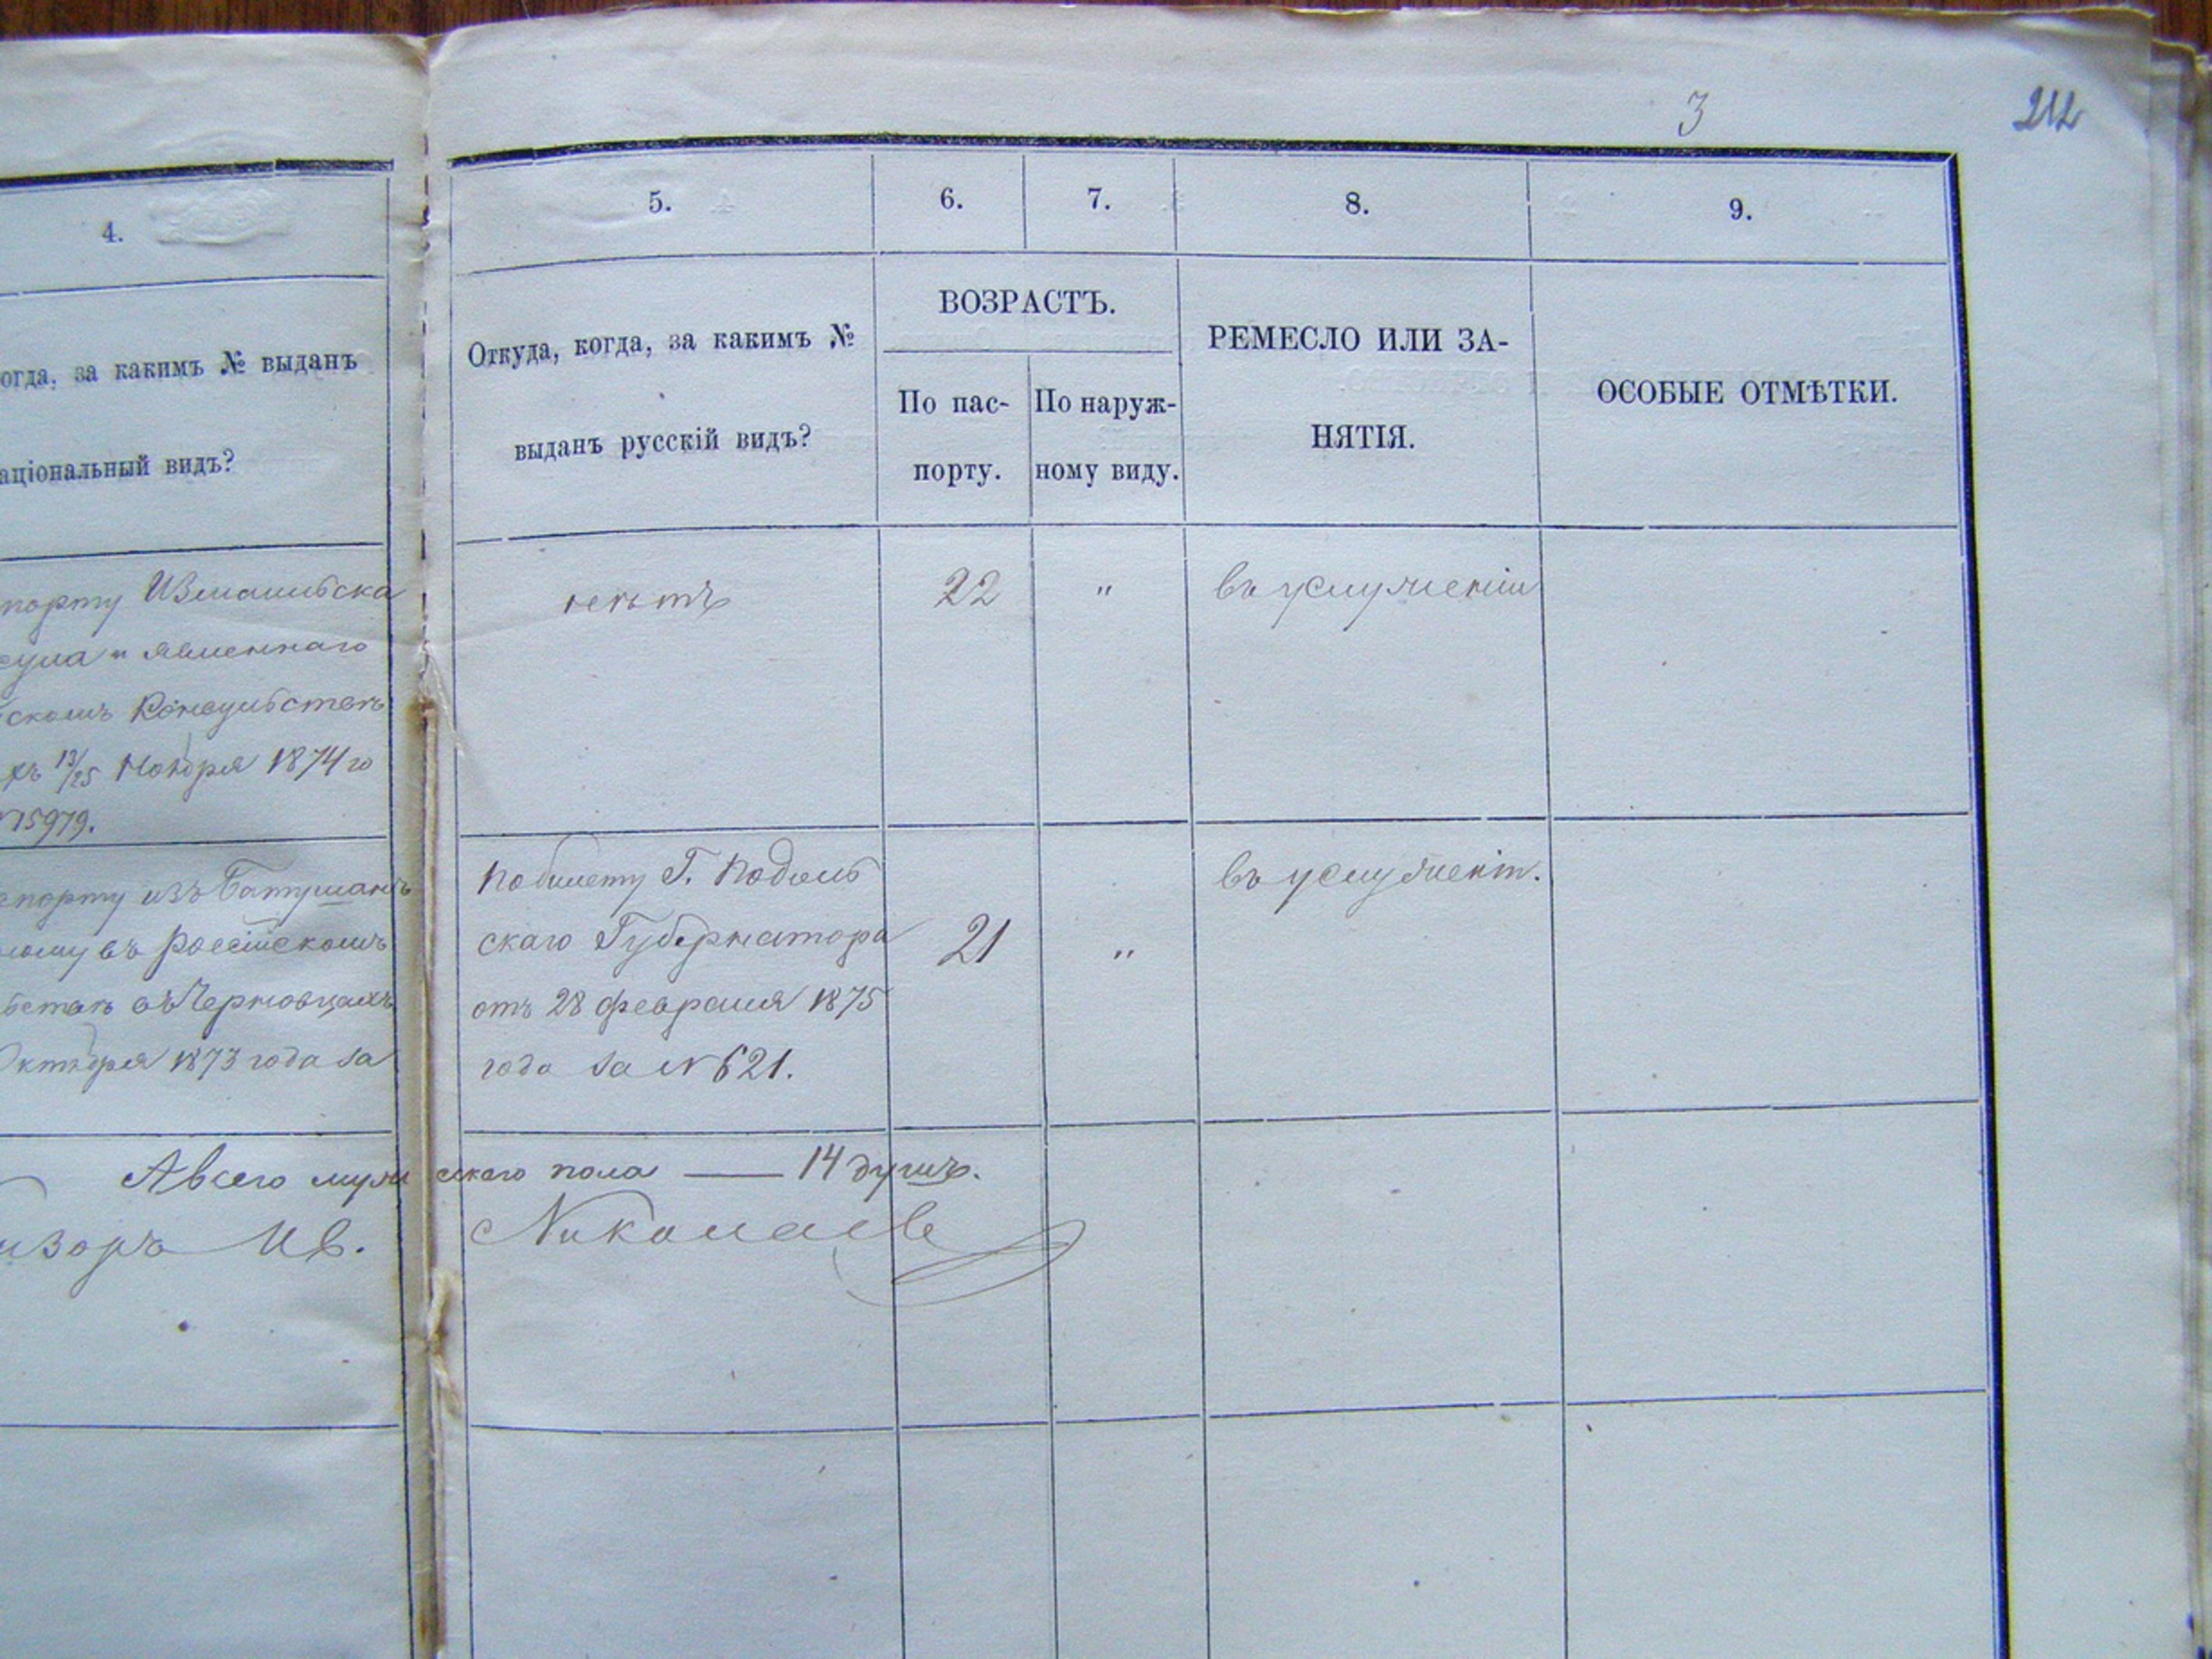 3
212
4.
5.
6.
7.
8.
9.
огда, за какимъ № выданъ
аціональный видъ?
Откуда, когда, за какимъ №
выданъ русскій видъ?
ВОЗРАСТЪ.
По пас-
порту.
По наруж-
ному виду.
РЕМЕСЛО ИЛИ ЗА-
НЯТІЯ.
ОСОБЫЕ ОТМѢТКИ.
порту Измаильска
сула и явленнаго
скомъ Консульствѣ
13/25 Ноября 1874 го
15979.
нѣтъ
22
"
въ услуженіи
спорту изъ Батушанъ
ному въ Россійскомъ
ьствѣ въ Черновцахъ
Октября 1873 года за
По билету Г. Подоль
скаго Губернатора
отъ 28 февраля 1875
года за № 621.
21
"
въ услуженіи.
А всего мужескаго пола — 14 душъ.
изоръ Ив. Николаевъ